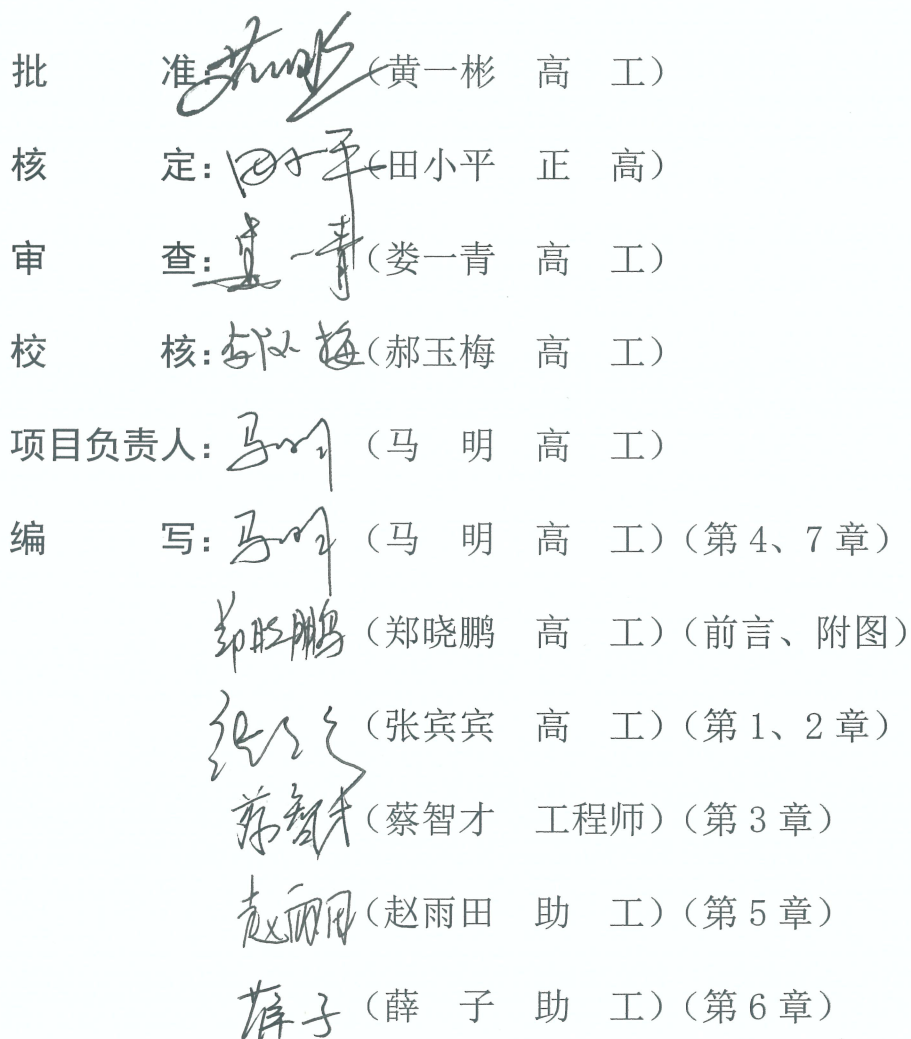 批 准: (黄一彬 高 工)
核 定: 田小平 (田小平 正 高)
审 查: 娄一青 (娄一青 高 工)
校 核: 郝玉梅 (郝玉梅 高 工)
项目负责人: 马明 (马 明 高 工)
编 写: 马明 (马 明 高 工) (第 4、7 章)
郑晓鹏 (郑晓鹏 高 工) (前言、附图)
(张宾宾 高 工) (第 1、2 章)
蔡智才 (蔡智才 工程师) (第 3 章)
赵雨田 (赵雨田 助 工) (第 5 章)
薛子 (薛 子 助 工) (第 6 章)